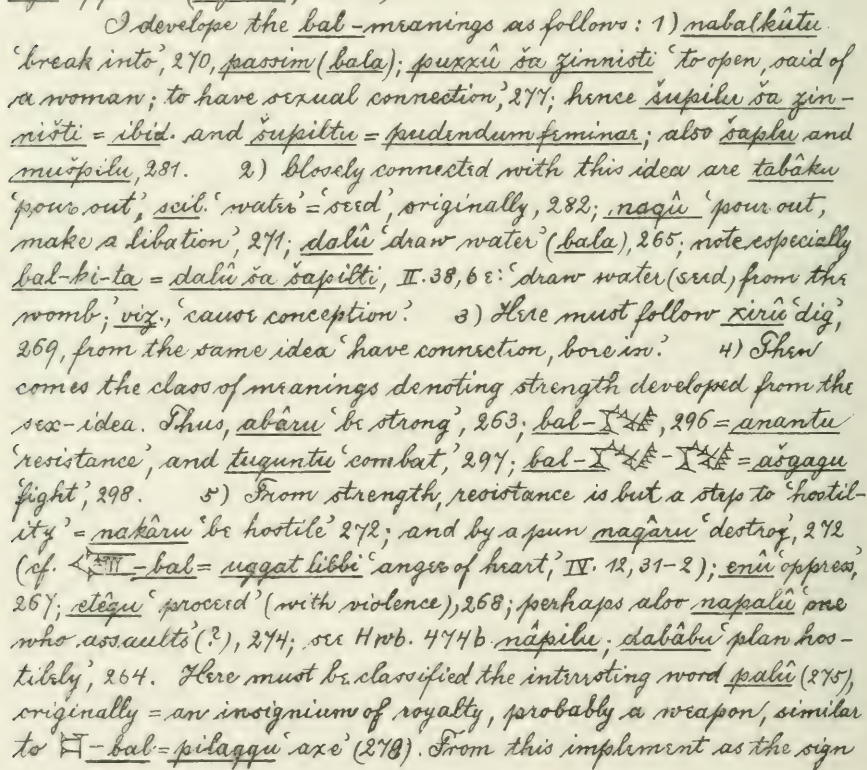 I develope the bal-meanings as follows: 1) nabalkûtu
'break into', 270, passim (bala); puxxû ša zinnisti 'to open, said of
a woman; to have sexual connection', 277; hence šupilu ša zin-
ništi = ibid. and šupiltu = pudendum feminae; also šaplu and
mušpilu, 281. 2) Closely connected with this idea are tabâku
'pour out', scil. 'water' = 'seed', originally, 282; naqû 'pour out,
make a libation', 271; dalû 'draw water' (bala), 265; note especially
bal-ki-ta = dalû ša šapilti, II. 38, 6 e: 'draw water (seed) from the
womb; viz., 'cause conception'. 3) Here must follow xirû 'dig',
269, from the same idea 'have connection, bore in'. 4) Then
comes the class of meanings denoting strength developed from the
sex-idea. Thus, abâru 'be strong', 263; bal- , 296 = anantu
'resistance', and tuguntu 'combat', 297; bal- - = ašgagu
'fight', 298. 5) From strength, resistance is but a step to 'hostil-
ity' = nakâru 'be hostile' 272; and by a pun naqâru 'destroy', 272
(cf. -bal = uggat libbi 'anger of heart', IV. 12, 31-2); enû 'oppress',
267; etêqu 'proceed' (with violence), 268; perhaps also napalû 'one
who assaults' (?), 274; see Hwb. 474b nâpilu; dabâbu 'plan hos-
tilely', 264. Here must be classified the interesting word palû (275),
originally = an insignium of royalty, probably a weapon, similar
to -bal = pilaqqu 'axe' (278). From this implement as the sign